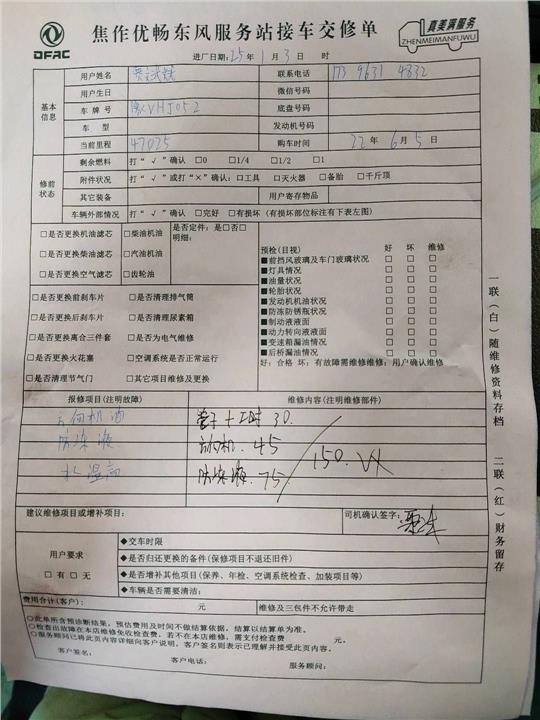 DFAC
焦作优畅东风服务站接车交修单
真美满服务
ZHENMEIMANFUWU
进厂日期: 25年 1月 3日 时
基本信息
用户姓名
联系电话 173 9631 4832
用户生日
微信号码
车牌号 豫VHJ052
底盘号码
车型
发动机号码
当前里程 47025
购车时间 22年 6月 5日
修前状态
剩余燃料 打“√”确认 □0 □1/4 □1/2 □1
附件状况 打“√”或打“×”确认: □工具 □灭火器 □备胎 □千斤顶
其它装备
用户寄存物品
车辆外部情况 打“√”确认 □完好 □有损坏(有损坏部位标注有下表左图)
□是否更换机油滤芯 □柴油机油 是否定件: 是□否□
明细:
□是否更换柴油滤芯 □汽油机油
□是否更换空气滤芯 □齿轮油
□是否更换前刹车片 □是否清理排气筒
□是否更换后刹车片 □是否清理尿素箱
□是否更换离合三件套 □是否为电气维修
□是否更换火花塞 □空调系统是否正常运行
□是否清理节气门 □其它项目维修及更换
预检(目视) 好 坏 维修
■前挡风玻璃及车门玻璃状况 □ □ □
■灯具情况 □ □ □
■油量状况 □ □ □
■轮胎状况 □ □ □
■发动机机油状况 □ □ □
■防冻防锈瓶状况 □ □ □
■制动液液面 □ □ □
■动力转向液液面 □ □ □
■变速箱漏油情况 □ □ □
■后桥漏油情况 □ □ □
好: 合格 坏: 有故障需维修维修: 用户确认维修
报修项目(注明故障)
维修内容(注明维修部件)
方向机油
管子+工时 30.
防冻液
方向机. 45
水温高
防冻液. 75
150. VX
建议维修项目或增补项目:
司机确认签字:
用户要求
□有 □无
◆交车时限
◆是否归还更换的备件(保修项目不退还旧件)
◆是否增补其他项目(保养、年检、空调系统检查、加装项目等)
◆车辆是否需要清洁:
费用合计(客户): 元
维修及三包件不允许带走
○此单所含预诊断结果,预估费用及时间不做结算依据,结算以结算单为准。
○检查出故障在本店维修免收检查费,若不在本店维修,需支付检查费 元。
○服务顾问已将此页内容详细向客户说明。客户签名则表示已理解并接受此页内容。
客户签名: 客户电话: 服务顾问:
一联(白)随维修资料存档
二联(红)财务留存